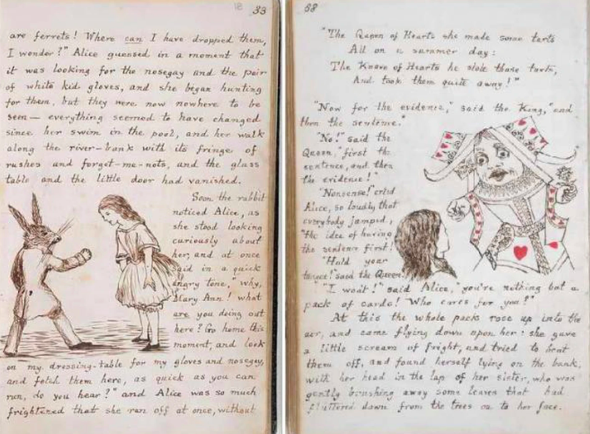 33
are ferrets! Where can I have dropped them,
I wonder?" Alice guessed in a moment that
it was looking for the nosegay and the pair
of white kid gloves, and she began hunting
for them, but they were now nowhere to be
seen — everything seemed to have changed
since her swim in the pool, and her walk
along the river-bank with its fringe of
rushes and forget-me-nots, and the glass
table and the little door had vanished.
Soon the rabbit
noticed Alice, as
she stood looking
curiously about
her, and at once
said in a quick
angry tone, "why,
Mary Ann! what
are you doing out
here? Go home this
moment, and look
on my dressing-table for my gloves and nosegay,
and fetch them here, as quick as you can
run, do you hear?" and Alice was so much
frightened that she ran off at once, without
88
"The Queen of Hearts she made some tarts
All on a summer day:
The Knave of Hearts he stole those tarts,
And took them quite away!"
"Now for the evidence," said the King, "and
then the sentence."
"No!" said the
Queen, "first the
sentence, and then
the evidence!"
"Nonsense!" cried
Alice, so loudly that
everybody jumped,
"the idea of having
the sentence first!
"Hold your
tongue!" said the Queen.
"I won't!" said Alice, "you're nothing but a
pack of cards! Who cares for you?"
At this the whole pack rose up into the
air, and came flying down upon her: she gave
a little scream of fright, and tried to beat
them off, and found herself lying on the bank,
with her head in the lap of her sister, who was
gently brushing away some leaves that had
fluttered down from the trees on to her face.